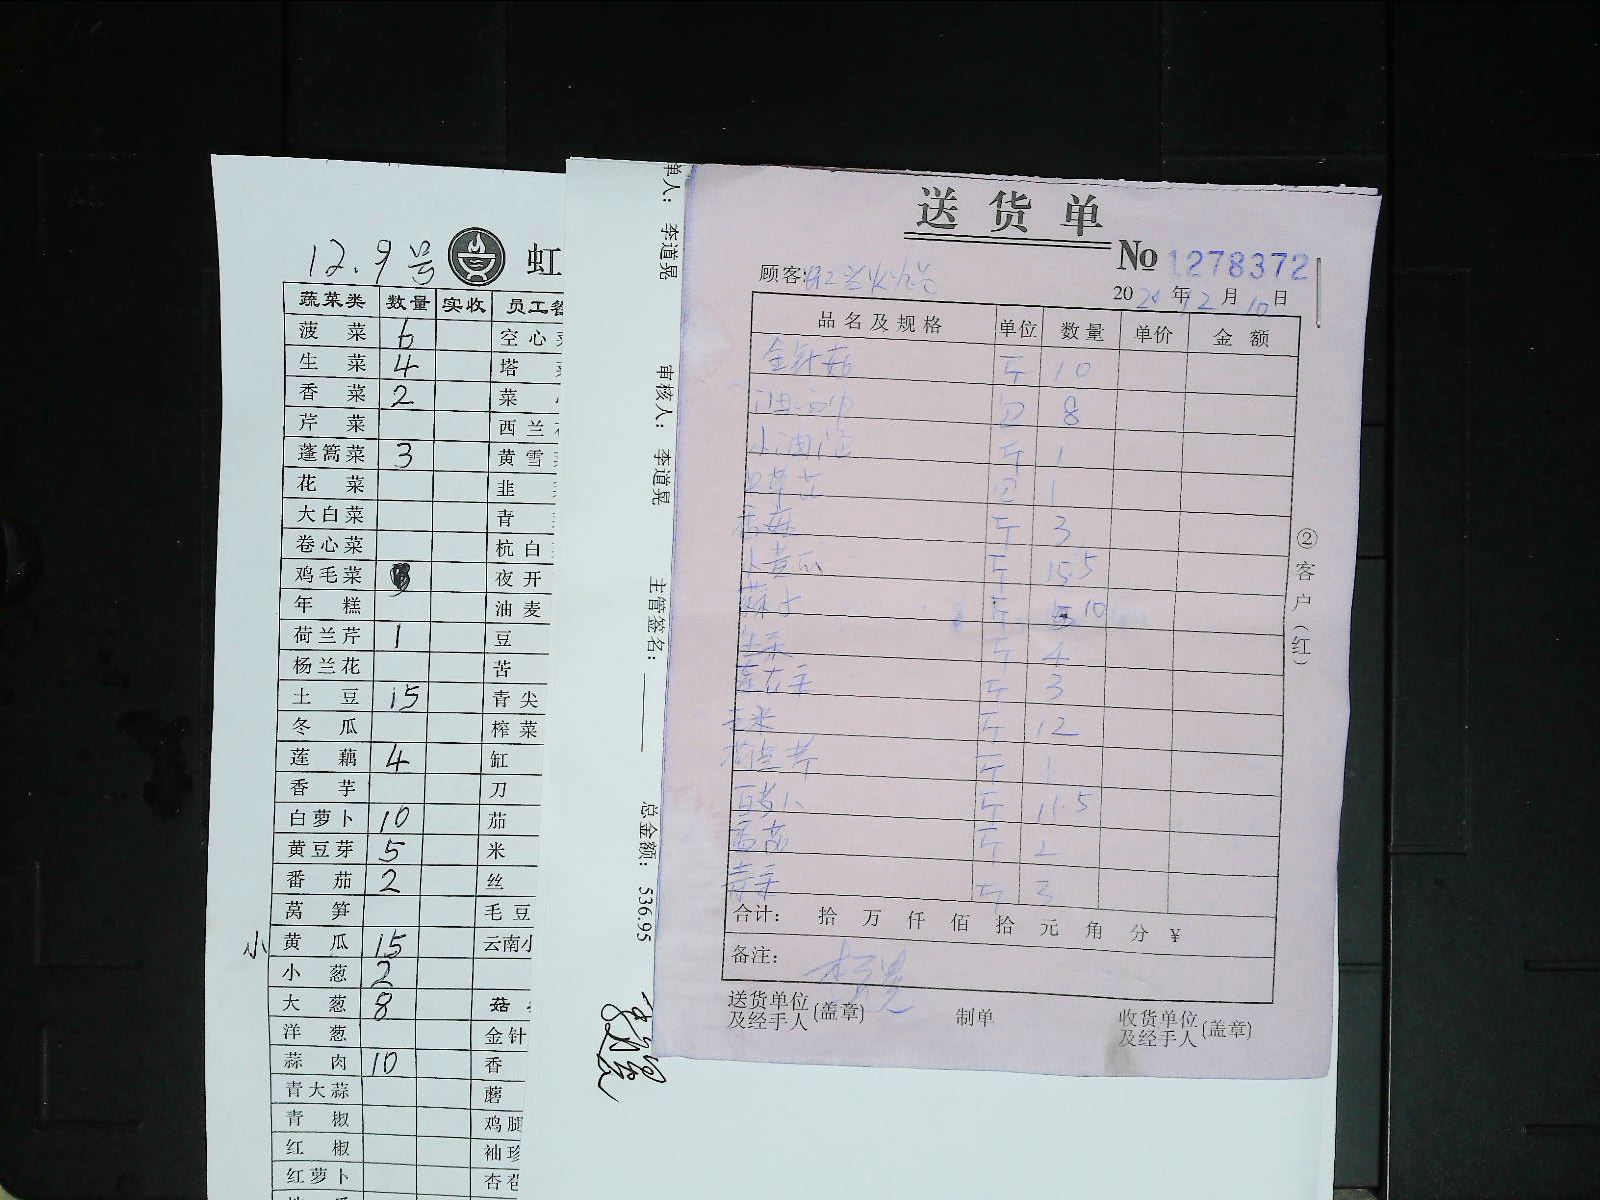 12.9号 虹
蔬菜类 数量 实收 员工
菠菜 6 空心
生菜 4 塔
香菜 2 菜
芹菜 西兰
蓬蒿菜 3 黄雪
花菜 韭
大白菜 青
卷心菜 杭白
鸡毛菜 夜开
年糕 油麦
荷兰芹 1 豆
杨兰花 苦
土豆 15 青尖
冬瓜 榨菜
莲藕 4 缸
香芋 刀
白萝卜 10 茄
黄豆芽 5 米
番茄 2 丝
莴笋 毛豆
小 黄瓜 15 云南小
小葱 2
大葱 8 菇
洋葱 金针
蒜肉 10 香
青大蒜 蘑
青椒 鸡腿
红椒 袖珍
红萝卜 杏
单人: 李道晃 审核人: 李道晃 主管签名: 总金额: 536.95
送货单
No 1278372
顾客:
20 20 年 12 月 10 日
品名及规格 单位 数量 单价 金额
金针菇 斤 10
包 8
小油 斤 1
包 1
香菇 斤 3
小黄瓜 斤 15.5
斤 10
生菜 斤 4
斤 3
玉米 斤 12
荷兰芹 斤 1
白萝卜 斤 11.5
番茄 斤 2
青菜 斤 3
合计: 拾 万 仟 佰 拾 元 角 分 ¥
备注:
送货单位及经手人(盖章) 制单 收货单位及经手人(盖章)
②客户(红)